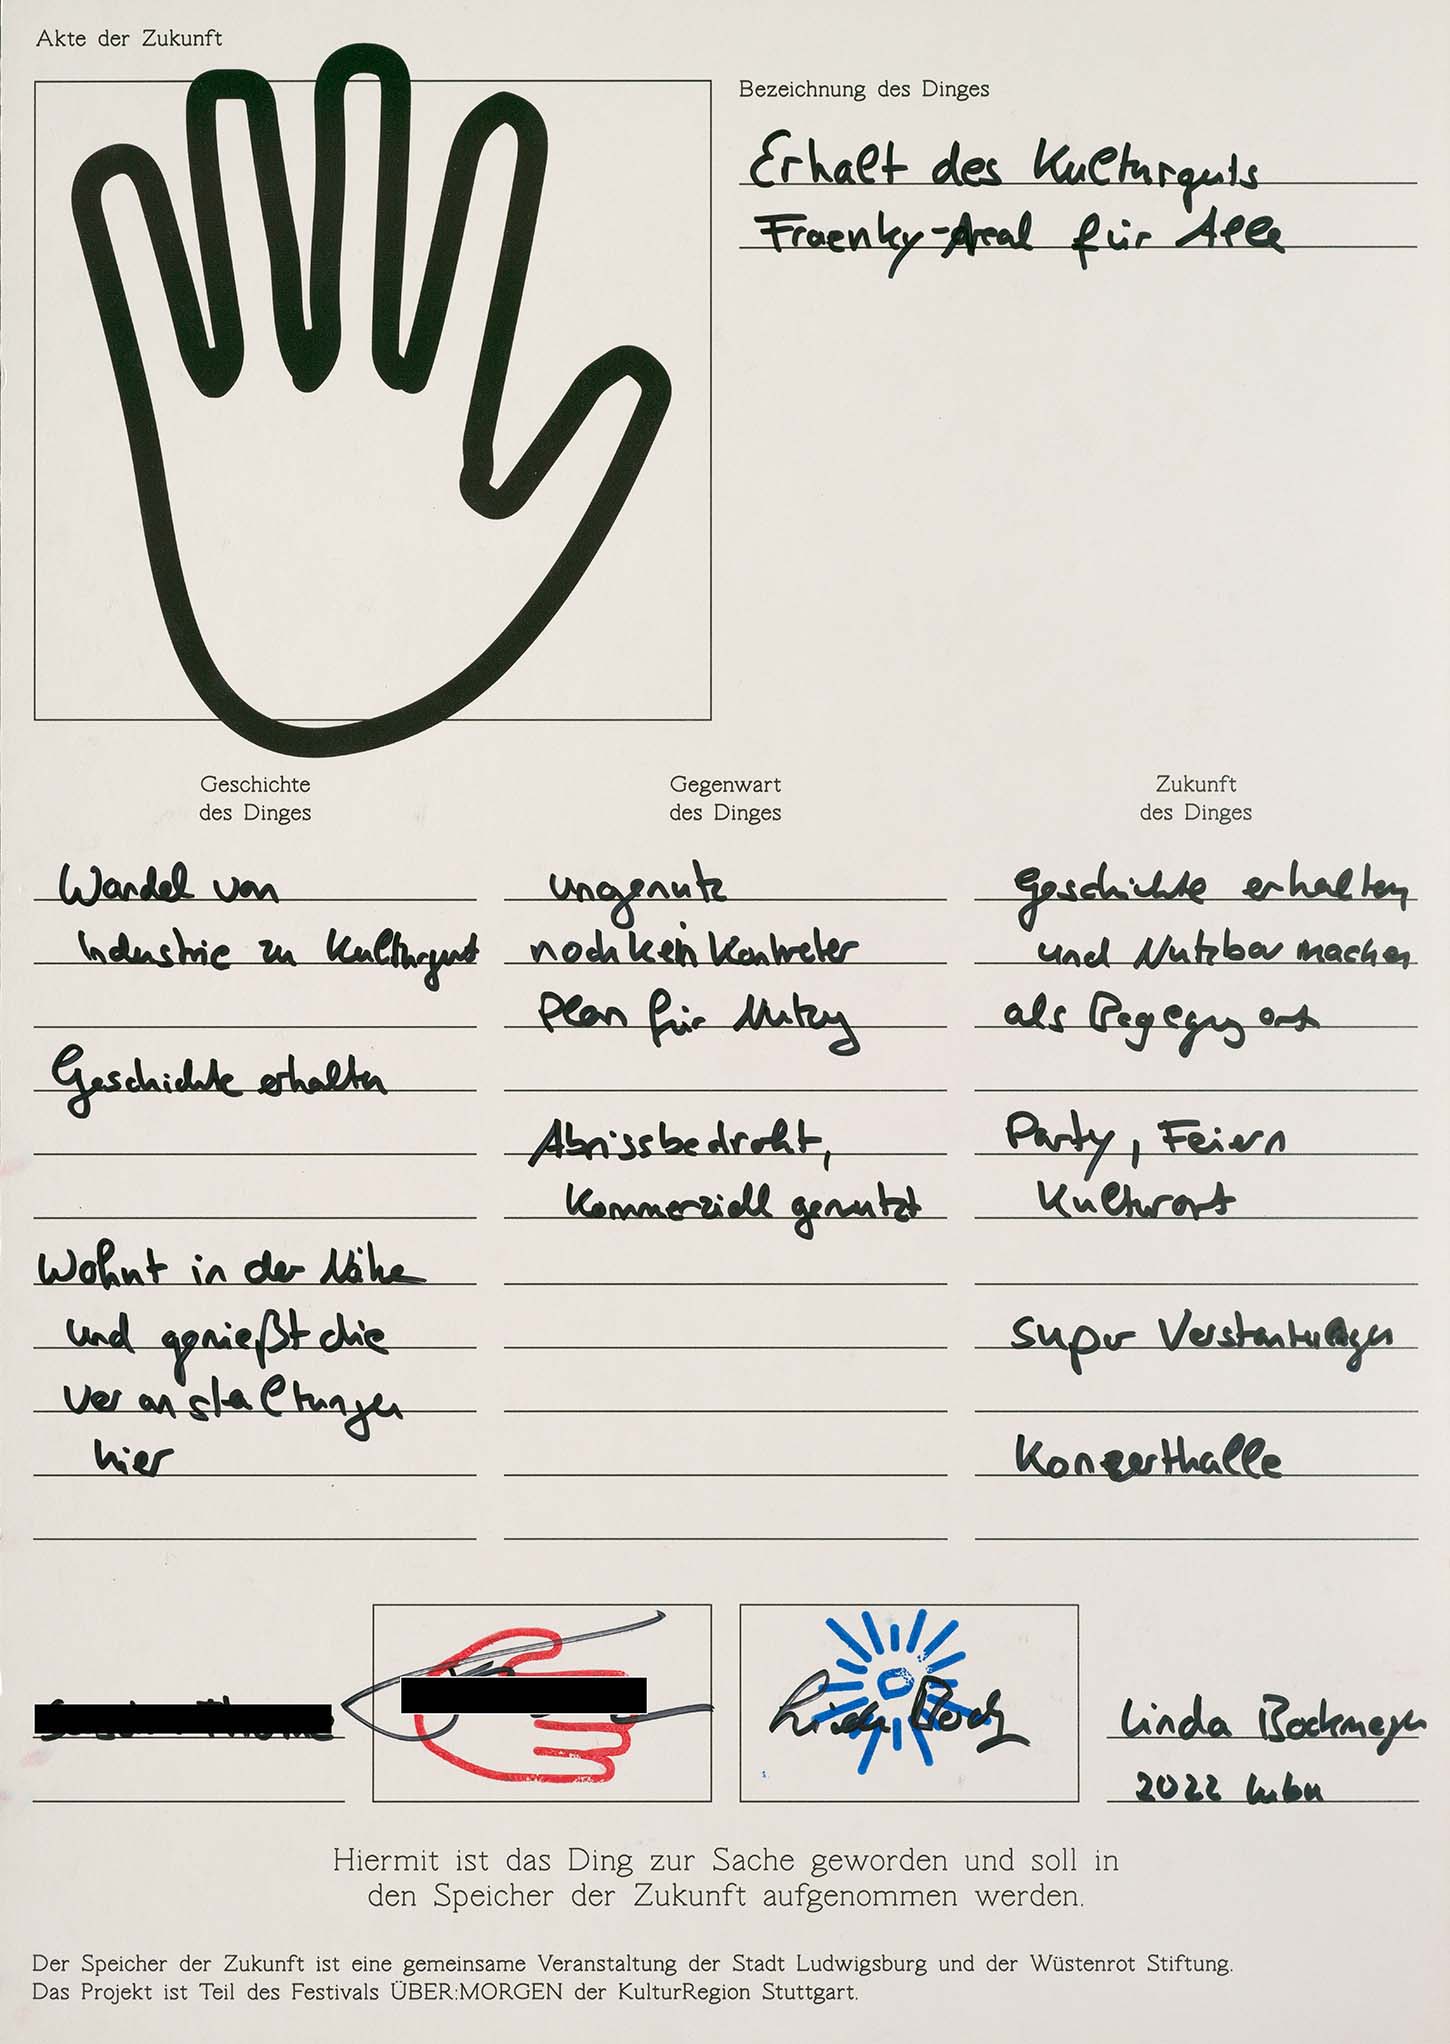 Akte der Zukunft
Bezeichnung des Dinges
Erhalt des Kulturguts
Fraenky-Areal für Alle
Geschichte
des Dinges
Wandel von
Industrie zu Kulturgut
Geschichte erhalten
Wohnt in der Nähe
und genießt die
Veranstaltungen
hier
Gegenwart
des Dinges
ungenutz
noch kein konkreter
Plan für
Abrissbedroht,
Kommerziell genutzt
Zukunft
des Dinges
Geschichte erhalten
und Nutzbar machen
als
Party, Feiern
Kulturort
super
Konzerthalle
Linda
Linda Bockmeyer
2022 lubu
Hiermit ist das Ding zur Sache geworden und soll in
den Speicher der Zukunft aufgenommen werden.
Der Speicher der Zukunft ist eine gemeinsame Veranstaltung der Stadt Ludwigsburg und der Wüstenrot Stiftung.
Das Projekt ist Teil des Festivals ÜBER:MORGEN der KulturRegion Stuttgart.